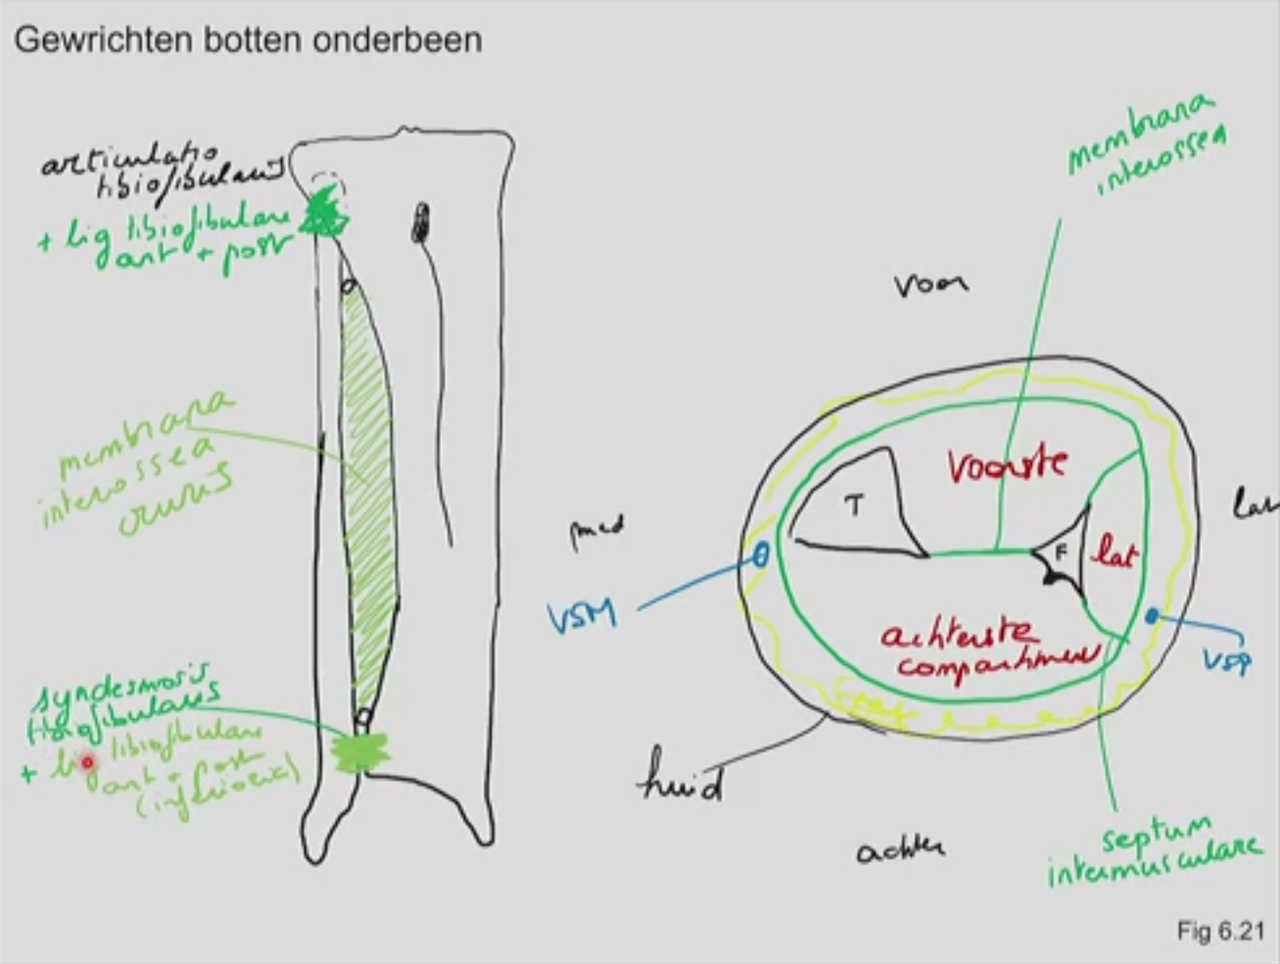 Gewrichten botten onderbeen
articulatio
tibiofibularis
+ lig tibiofibulare
ant + post
membrana
interossea
cruris
syndesmosis
tibiofibularis
+ lig tibiofibulare
ant + post
(inferiores)
membrana
interossea
voor
voorste
T
F
lat
med
lat
VSM
achterste
compartiment
VSP
huid
achter
septum
intermusculare
Fig 6.21